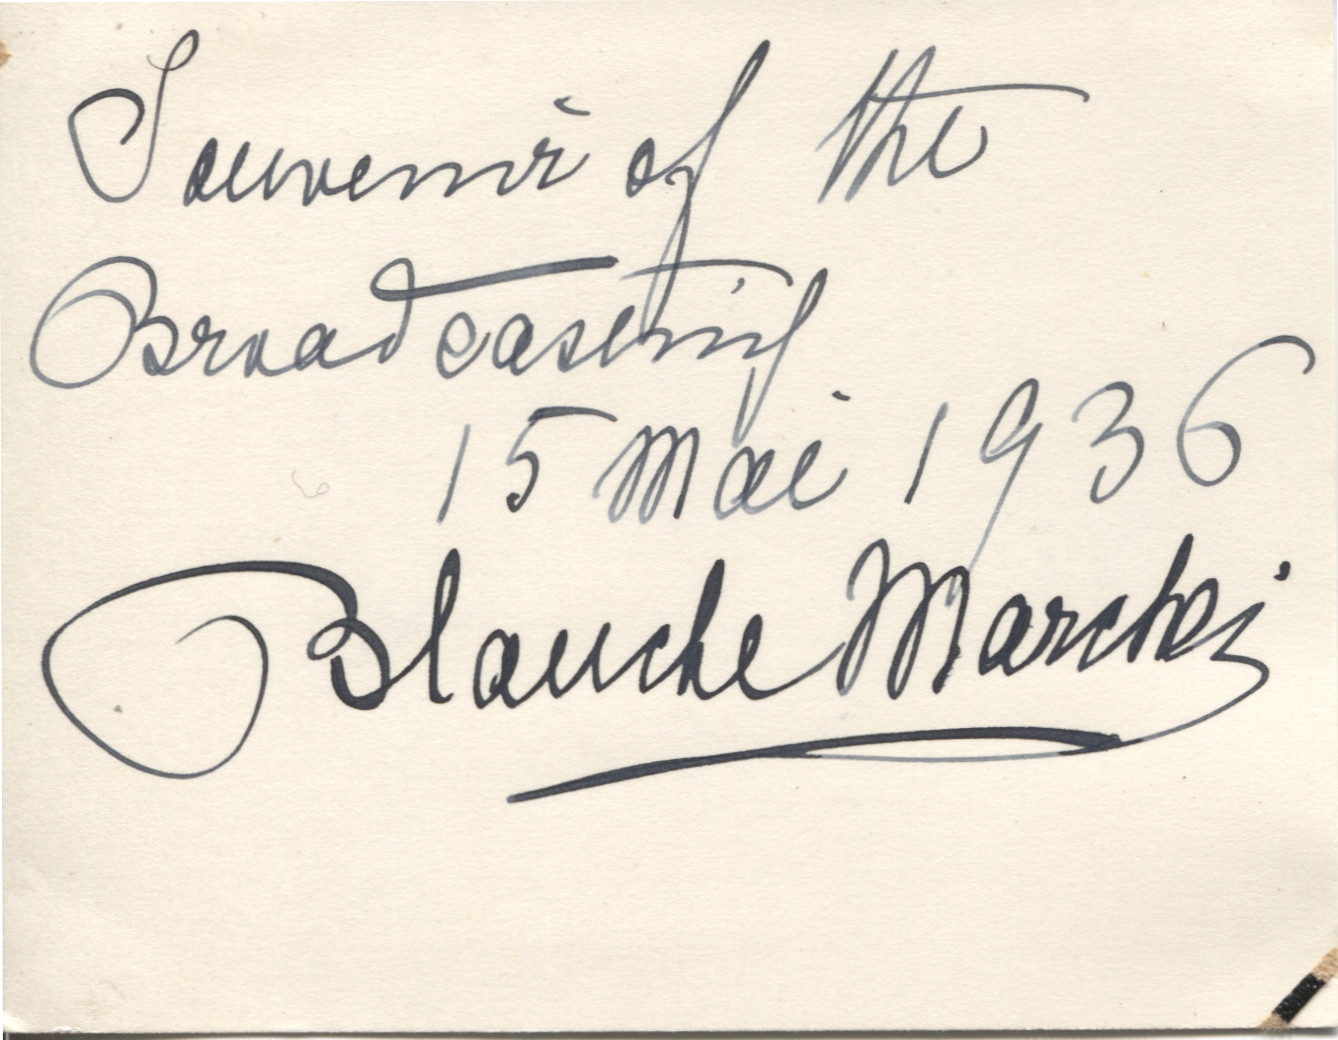 Souvenir of the
Broadcasting
15 Mai 1936
Blanche Marchesi